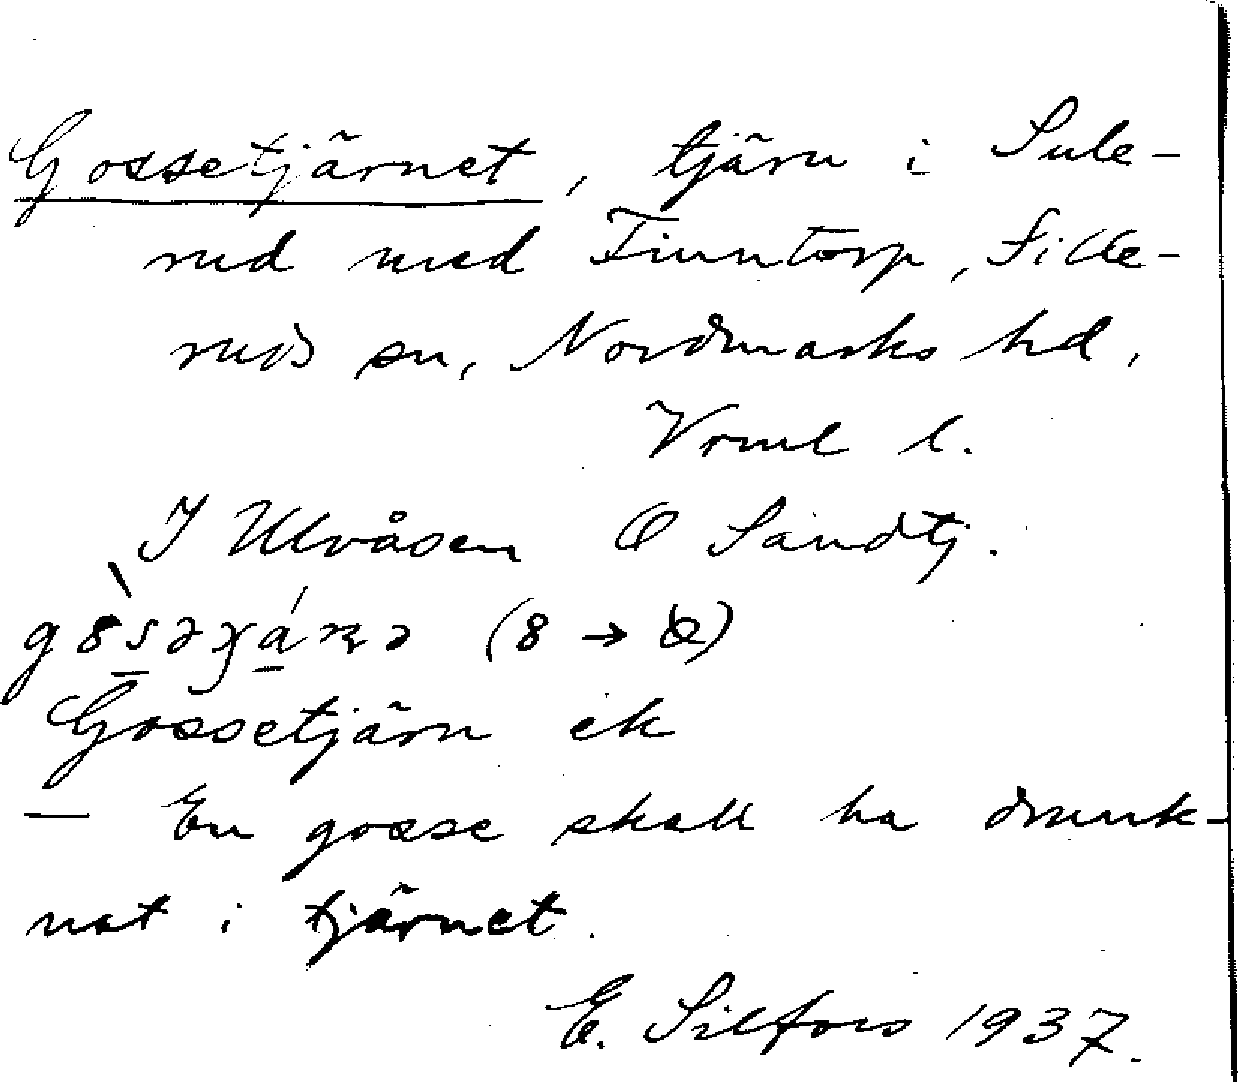 Gossetjärnet, tjärn i Sule-
rud med Finntorp, Sille-
ruds sn, Nordmarks hd,
Vrml l.
I Ulvåsen O Sandtj.
Gossetjärn ek
— En gosse skall ha drunk-
nat i tjärnet.
E. Silfors 1937.